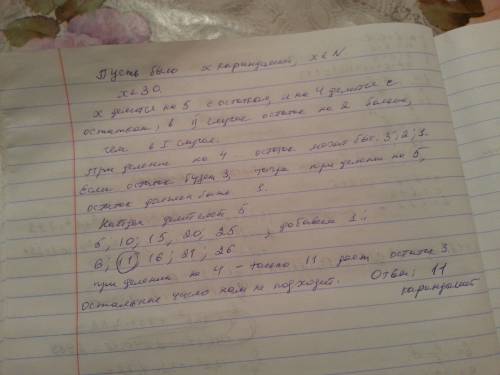 Пусть было x карандашей, x ∈ N
x < 30.
x делится на 5 с остатком, и на 4 делится с
остатком, в II случае остаток на 2 больше,
чем в I случае.
При делении на 4 остаток может быт. 3; 2; 1.
Если остаток будет 3, тогда при делении на 5,
остаток должен быть 1.
делителей 5
5, 10; 15, 20, 25 , добавим 1:
6; 11 16; 21; 26
при делении на 4 - только 11 дает остаток 3
остальные число нам не подходит. Ответ: 11
карандашей